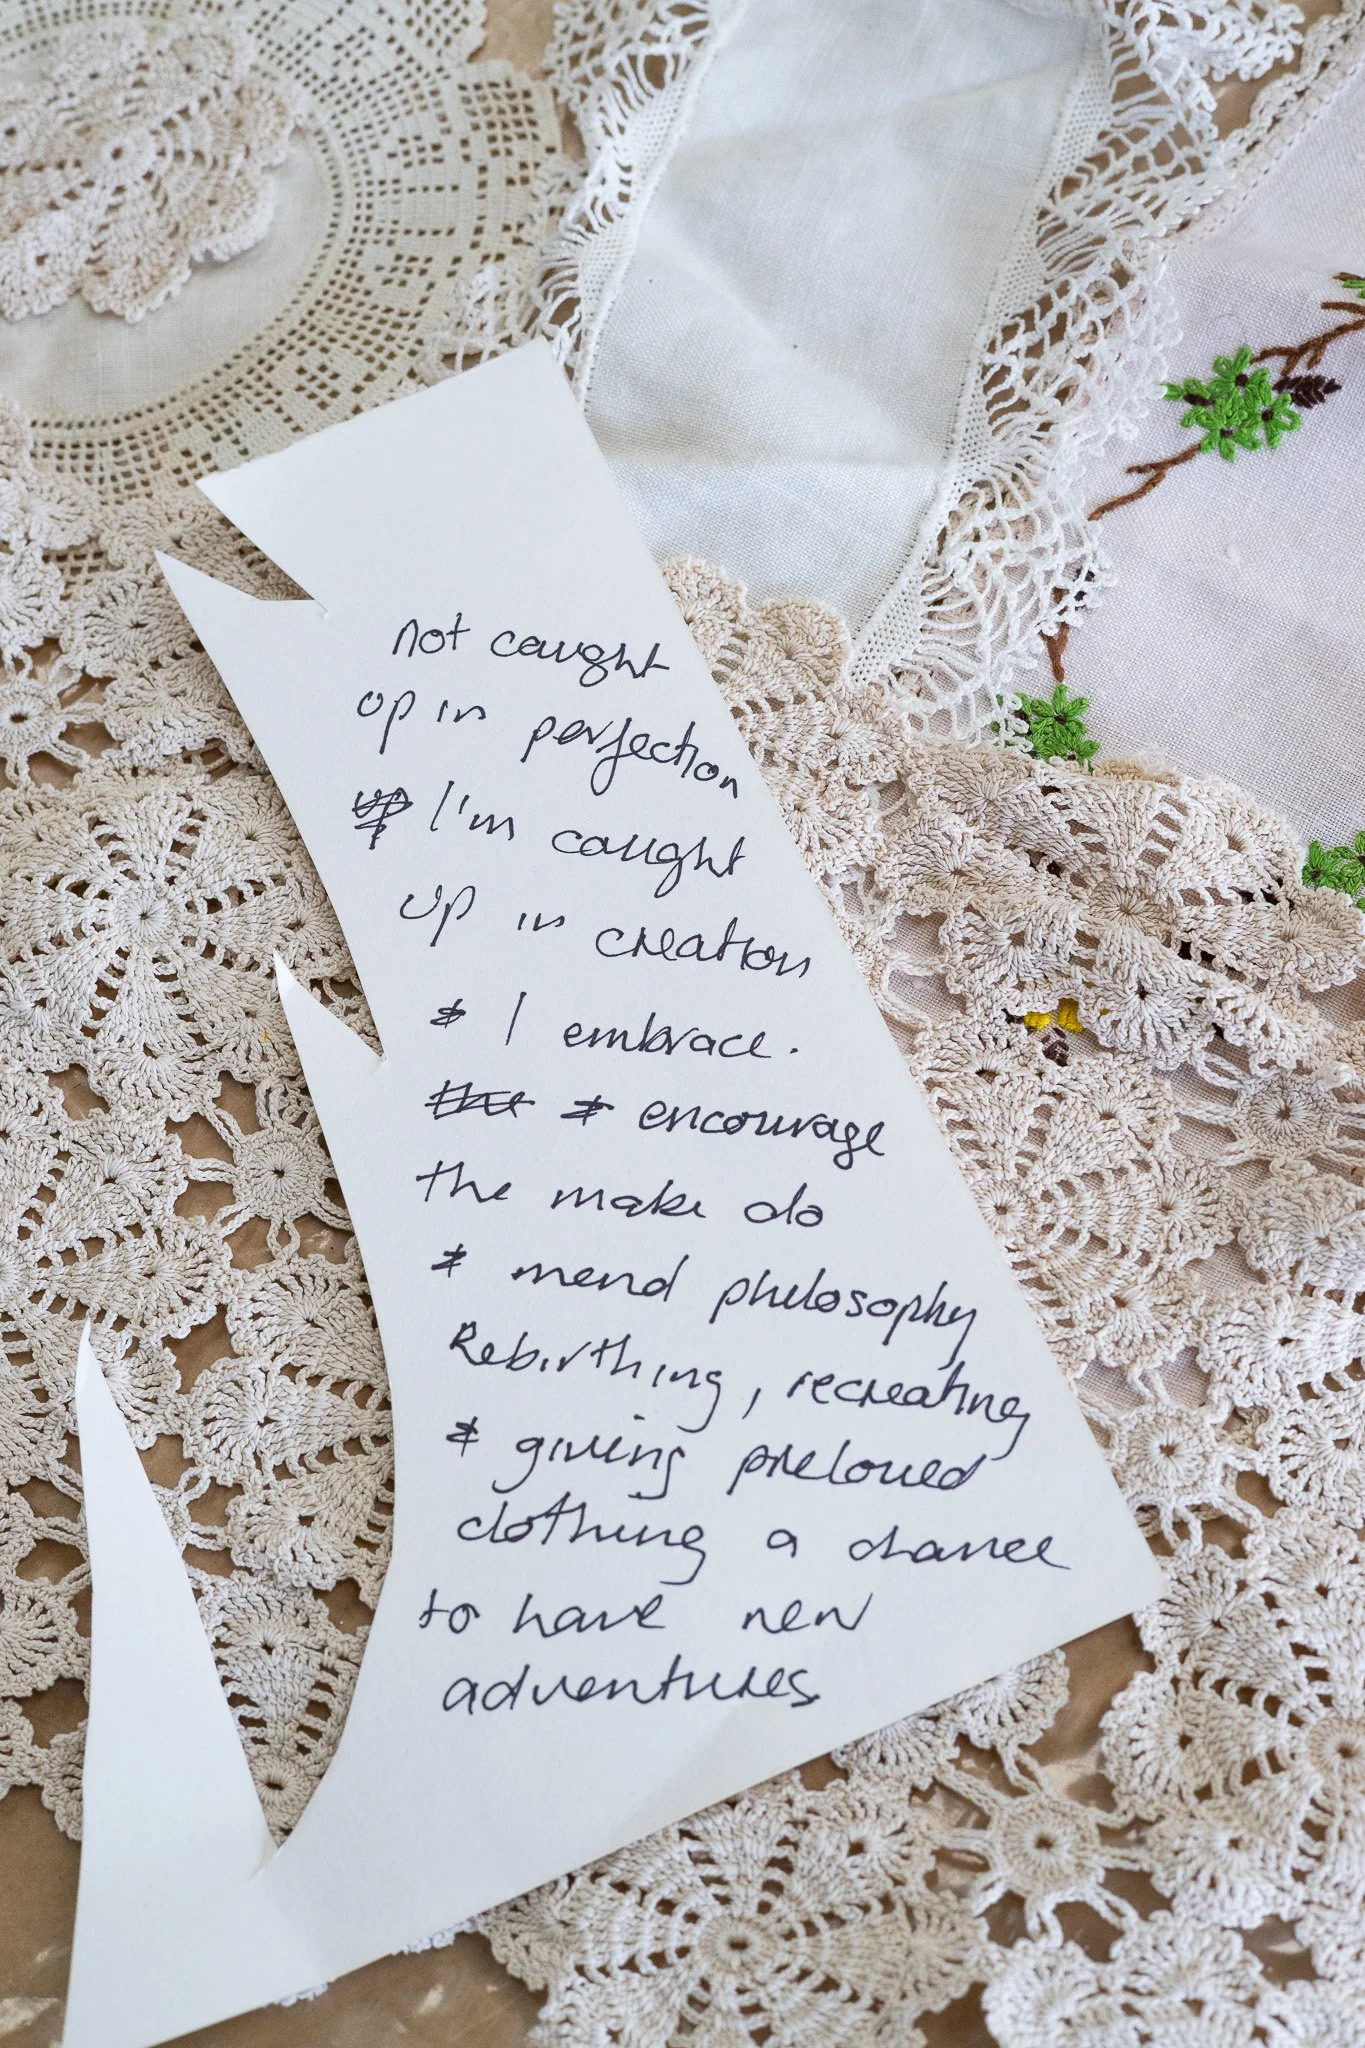 not caught
up in perfection
I'm caught
up in creation
& I embrace.
& encourage
the make do
& mend philosophy
Rebirthing, recreating
& giving preloved
clothing a chance
to have new
adventures